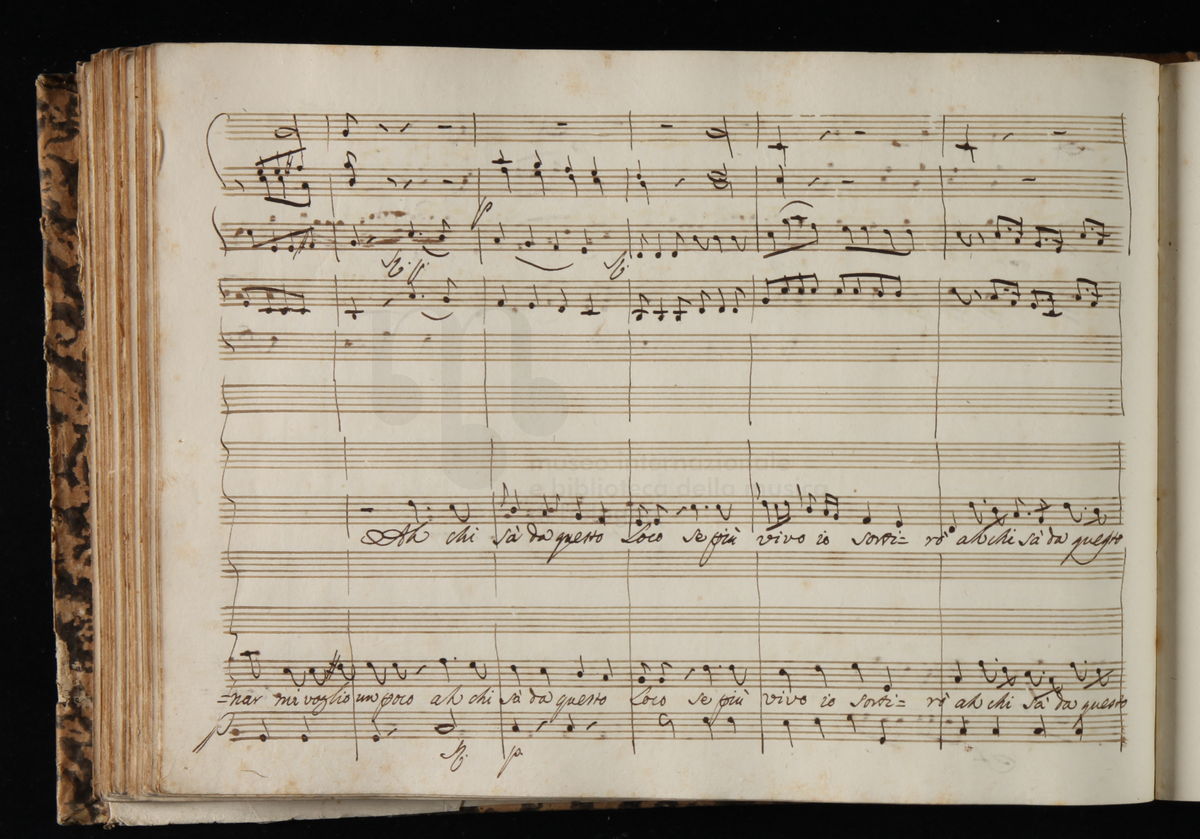 museo internazionale
e biblioteca della musica
Ah chi sà da questo Loco se più vivo io sorti= rò ah chi sà da questo
=nar mi voglio un poco ah chi sà da questo Loco se più vivo io sorti= rò ah chi sà da questo